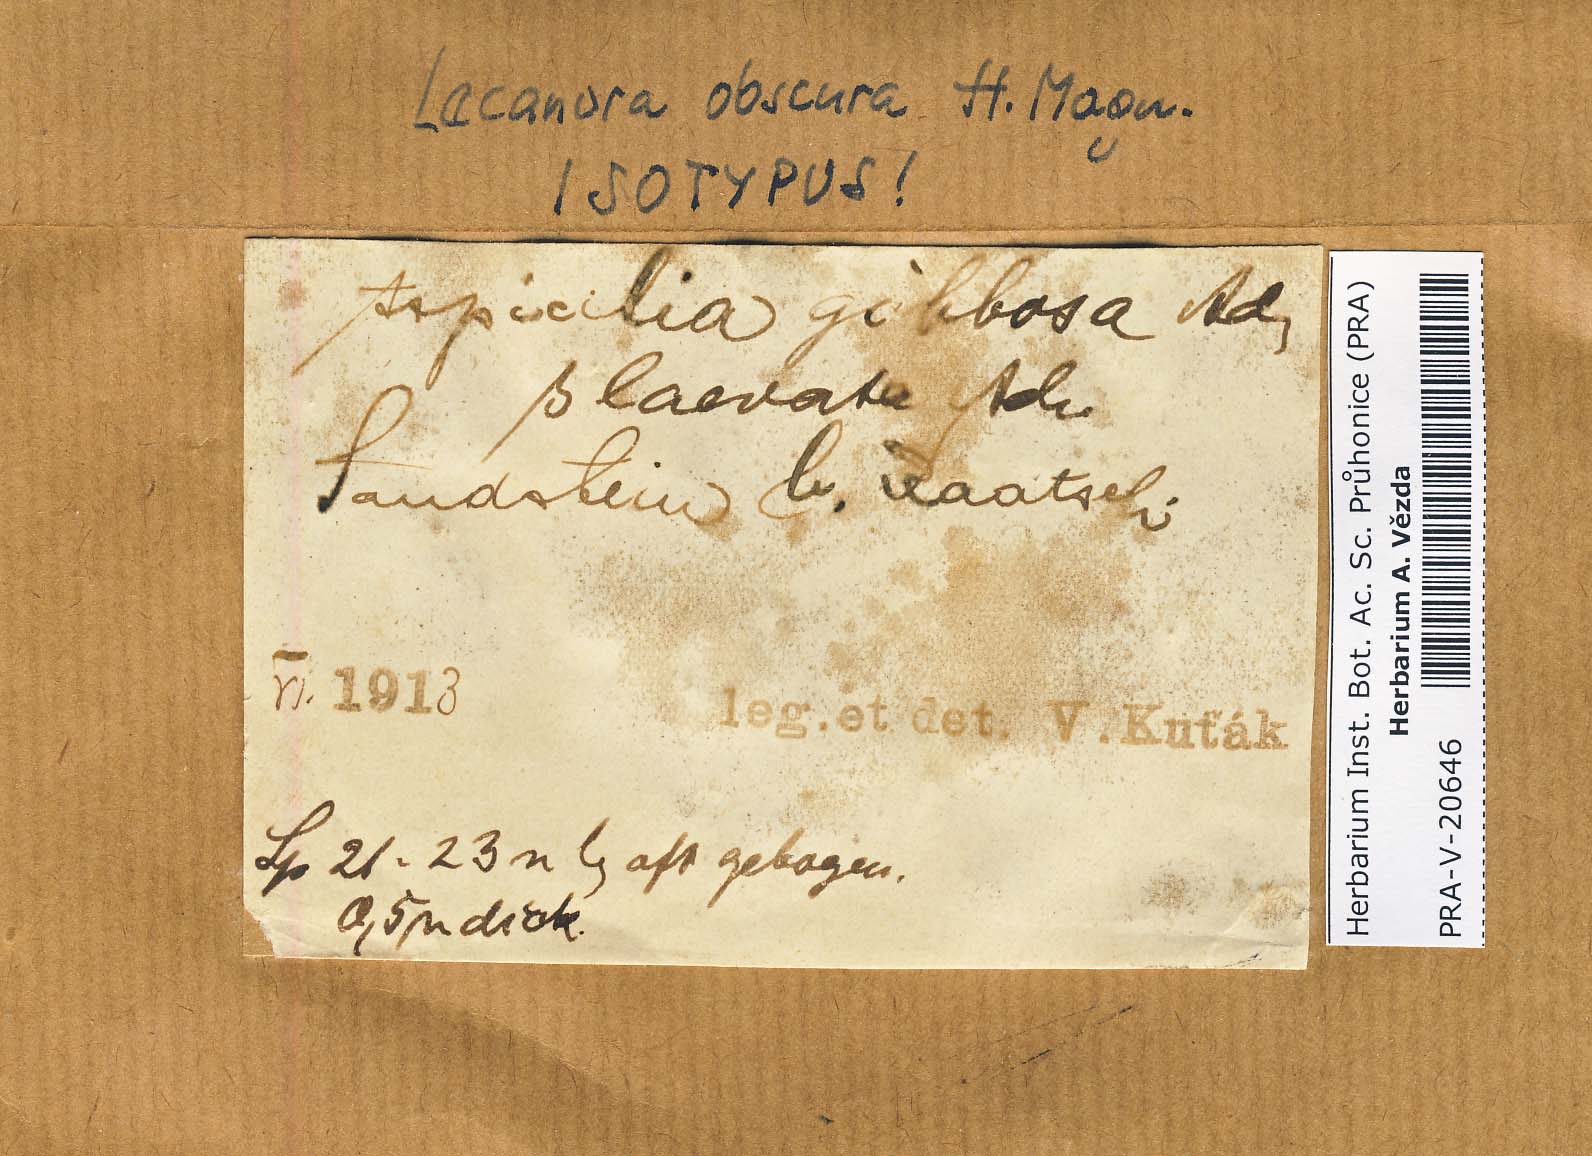 Lecanora obscura H. Magn.
ISOTYPUS!
Aspicilia gibbosa Ach.
β laevata Ach.
Sandstein b.
VI. 1913
leg.et det. V.Kuťák
Sp 21-23 μ lg oft gebogen.
0,5 μ dick.
Herbarium Inst. Bot. Ac. Sc. Průhonice (PRA)
Herbarium A. Vězda
PRA-V-20646